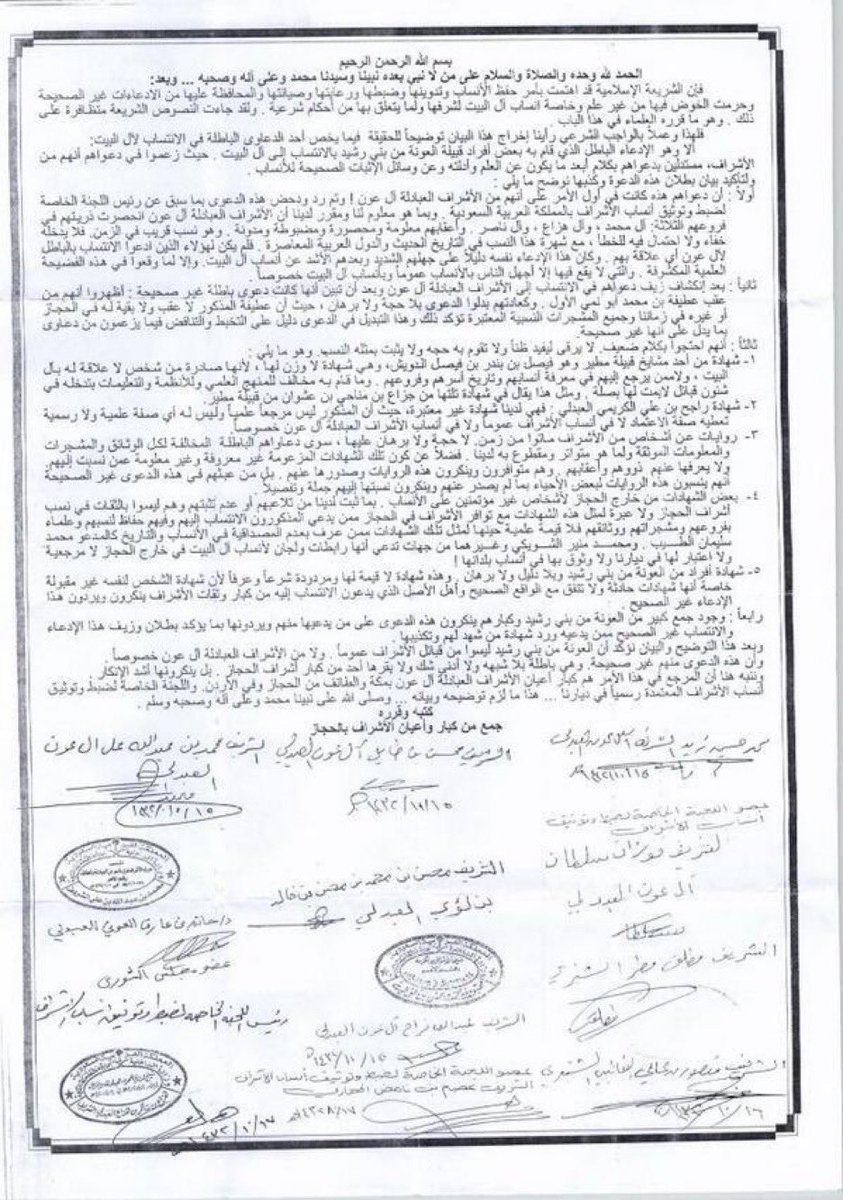 بسم الله الرحمن الرحيم
الحمد لله وحده والصلاة والسلام على من لا نبي بعده نبينا وسيدنا محمد وعلى آله وصحبه ... وبعد:
فإن الشريعة الإسلامية قد اهتمت بأمر حفظ الأنساب وتدوينها وضبطها ورعايتها وصيانتها والمحافظة عليها من الادعاءات غير الصحيحة
وحرمت الخوض فيها من غير علم وخاصة أنساب آل البيت لشرفها ولما يتعلق بها من أحكام شرعية . ولقد جاءت النصوص الشرعية متظافرة على
ذلك . وهو ما قرره العلماء في هذا الباب.
فلهذا وعملاً بالواجب الشرعي رأينا إخراج هذا البيان توضيحاً للحقيقة فيما يخص أحد الدعاوى الباطلة في الانتساب لآل البيت:
ألا وهو الإدعاء الباطل الذي قام به بعض أفراد قبيلة العونة من بني رشيد بالانتساب إلى آل البيت . حيث زعموا في دعواهم أنهم من
الأشراف، مستدلين بدعواهم بكلام أبعد ما يكون عن العلم وأدلته وعن وسائل الإثبات الصحيحة للأنساب .
ولتأكيد بيان بطلان هذه الدعوة وكذبها نوضح ما يلي :
أولاً : أن دعواهم هذه كانت في أول الأمر على أنهم من الأشراف العبادلة آل عون ! وتم رد ودحض هذه الدعوى بما سبق عن رئيس اللجنة الخاصة
لضبط وتوثيق أنساب الأشراف بالمملكة العربية السعودية . وبما هو معلوم لنا ومقرر لدينا أن الأشراف العبادلة آل عون انحصرت ذريتهم في
فروعهم الثلاثة: آل محمد ، وآل هزاع ، وآل ناصر . وأعقابهم معلومة ومحصورة ومضبوطة ومدونة . وهو نسب قريب في الزمن. فلا يدخله
خفاء ولا احتمال فيه للخطأ ، مع شهرة هذا النسب في التاريخ الحديث والدول العربية المعاصرة . فلم يكن لهؤلاء الذين ادعوا الانتساب بالباطل
لآل عون أي علاقة بهم . وكان هذا الإدعاء نفسه دليلاً على جهلهم الشديد وبعدهم الأشد عن أنساب آل البيت. وإلا لما وقعوا في هذه الفضيحة
العلمية المكشوفة . والتي لا يقع فيها إلا أجهل الناس بالأنساب عموماً وبأنساب آل البيت خصوصاً .
ثانياً : بعد إنكشاف زيف دعواهم في الانتساب إلى الأشراف العبادلة آل عون وبعد أن تبين أنها كانت دعوى باطلة غير صحيحة : أظهروا أنهم من
عقب عطيفة بن محمد أبو نمي الأول . وكعادتهم بدلوا الدعوى بلا حجة ولا برهان ، حيث أن عطيفة المذكور لا عقب ولا بقية له في الحجاز
أو غيره في زماننا وجميع المشجرات النسبية المعتبرة تؤكد ذلك وهذا التبديل في الدعوى دليل على التخبط والتناقض فيما يزعمون من دعاوى
بما يدل على أنها غير صحيحة.
ثالثاً : أنهم احتجوا بكلام ضعيف. لا يرقى ليفيد ظناً ولا تقوم به حجه ولا يثبت بمثله النسب. وهو ما يلي :
١- شهادة من أحد مشايخ قبيلة مطير وهو فيصل بن بندر بن فيصل الدويش، وهي شهادة لا وزن لها ، لأنها صادرة من شخص لا علاقة له بآل
البيت ، ولاممن يرجع إليهم في معرفة أنسابهم وتاريخ أسرهم وفروعهم . وما قام به مخالف للمنهج العلمي وللأنظمة والتعليمات بتدخله في
شئون قبائل لايمت لها بصلة . ومثل هذا يقال في شهادة تلتها من جزاع بن مناحي بن عشوان من قبيلة مطير.
٢- شهادة راجح بن علي الكريمي العبدلي : فهي لدينا شهادة غير معتبرة، حيث أن المذكور ليس مرجعاً علمياً وليس له أي صفة علمية ولا رسمية
تعطيه صفة الاعتماد لا في أنساب الأشراف عموماً ولا في أنساب الأشراف العبادلة آل عون خصوصاً .
٣- روايات عن أشخاص من الأشراف ماتوا من زمن. لا حجة ولا برهان عليها ، سوى دعاواهم الباطلة المخالفة لكل الوثائق والمشجرات
والمعلومات الموثقة ولما هو متواتر ومقطوع به لدينا . فضلاً عن كون تلك الشهادات المزعومة غير معروفة وغير معلومة عمن نسبت إليهم
ولا يعرفها عنهم ذووهم وأعقابهم . وهم متوافرون وينكرون هذه الروايات وصدورها عنهم . بل من عبثهم في هذه الدعوى غير الصحيحة
أنهم ينسبون هذه الروايات لبعض الأحياء بما لم يصدر عنهم وينكرون نسبتها إليهم جملة وتفصيلاً .
٤- بعض الشهادات من خارج الحجاز لأشخاص غير مؤتمنين على الأنساب . بما ثبت لدينا من تلاعبهم أو عدم تثبتهم وهم ليسوا بالثقات في نسب
أشراف الحجاز ولا عبرة لمثل هذه الشهادات مع توافر الأشراف في الحجاز ممن يدعي المذكورون الانتساب إليهم وفيهم حفاظ لنسبهم وعلماء
بفروعهم ومشجراتهم ووثائقهم. فلا قيمة علمية حينها لمثل تلك الشهادات ممن عرف بعدم المصداقية في الأنساب والتاريخ كالمدعو محمد
سليمان الطيب . ومحمد منير الشويكي وغيرهما من جهات تدعي أنها رابطات ولجان لأنساب آل البيت في خارج الحجاز لا مرجعية
ولا اعتبار لها في ديارنا ولا وثوق بها في أنساب بلدانها !
٥- شهادة أفراد من العونة من بني رشيد وبلا دليل ولا برهان . وهذه شهادة لا قيمة لها ومردودة شرعاً وعرفاً لأن شهادة الشخص لنفسه غير مقبولة
خاصة أنها شهادات حادثة ولا تتفق مع الواقع الصحيح وأهل الأصل الذي يدعون الانتساب إليه من كبار وثقات الأشراف ينكرون ويردون هذا
الإدعاء غير الصحيح .
رابعاً : وجود جمع كبير من العونة من بني رشيد وكبارهم ينكرون هذه الدعوى على من يدعيها منهم ويردونها بما يؤكد بطلان وزيف هذا الإدعاء
والانتساب غير الصحيح ممن يدعيه ورد شهادة من شهد لهم وتكذيبها .
وبعد هذا التوضيح والبيان نؤكد أن العونة من بني رشيد ليسوا من قبائل الأشراف عموماً . ولا من الأشراف العبادلة آل عون خصوصاً .
وأن هذه الدعوى منهم غير صحيحة. وهي باطلة بلا شبهه ولا أدنى شك ولا يقرها أحد من كبار أشراف الحجاز . بل ينكرونها أشد الإنكار
وننبه هنا أن المرجع في هذا الأمر هم كبار أعيان الأشراف العبادلة آل عون بمكة والطائف من الحجاز وفي الأردن. واللجنة الخاصة لضبط وتوثيق
أنساب الأشراف المعتمدة رسمياً في ديارنا ... هذا ما لزم توضيحه وبيانه ... وصلى الله على نبينا محمد وعلى آله وصحبه وسلم .
كتبه وقرره
جمع من كبار وأعيان الأشراف بالحجاز
الشريف محمد بن عبدالله علي آل عون
العبدلي
عضو اللجنة الخاصة لضبط وتوثيق
أنساب الأشراف
الشريف فوزان سلطان
آل عون العبدلي
الشريف محسن بن محمد بن محسن بن خالد
بن لؤي العبدلي
عضو مجلس الشورى
رئيس اللجنة الخاصة لضبط وتوثيق أنساب الأشراف
عضو اللجنة الخاصة لضبط وتوثيق أنساب الأشراف